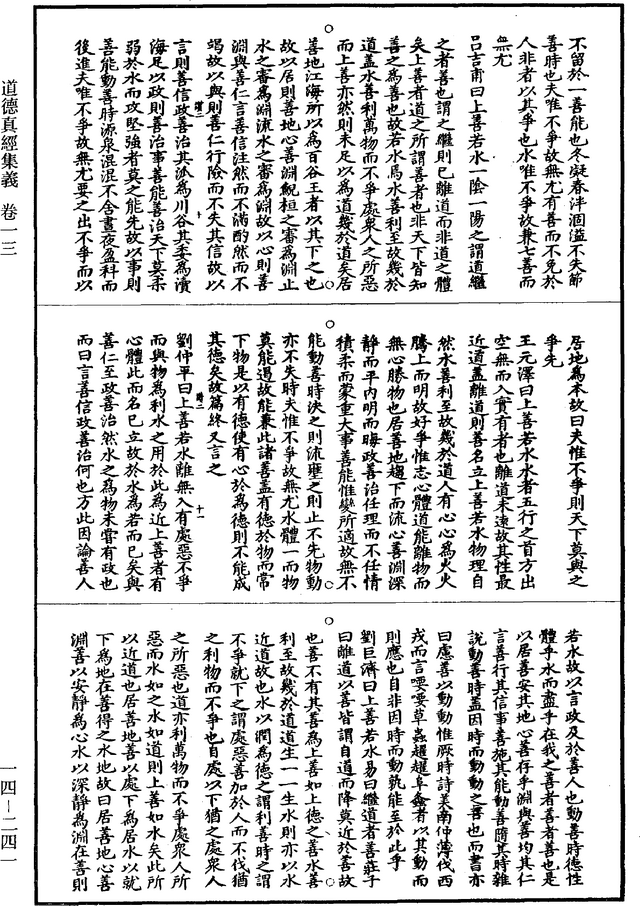 道德真經集義 卷一三
一四—二四一
不留於一善能也冬凝春泮涸溢不失節
善時也夫唯不爭故無尤有善而不免於
人非者以其爭也水唯不爭故兼七善而
無尤
呂吉甫曰上善若水一陰一陽之謂道繼
之者善也謂之繼則已離道而非道之體
矣上善者道之所謂善者也非天下皆知
善之為善也故若水焉水善利至故幾於
道蓋水善利萬物而不爭處眾人之所惡
而上善亦然則未足以為道幾於道矣居
善地江海所以為百谷王者以其下之也
故以居則善地心善淵鯢桓之審為淵止
水之審為淵流水之審為淵故以心則善
淵與善仁言善信注然而不滿酌然而不
竭故以與則善仁行險而不失其信故以
言則善信政善治其派為川谷其委為瀆
海足以政則善治事善能善治天下莫柔
弱於水而攻堅強者莫之能先故以事則
善能動善時源泉混混不舍晝夜盈科而
後進夫唯不爭故無尤要之出不爭而以
居地為本故曰夫惟不爭則天下莫與之
爭先
王元澤曰上善若水水者五行之首方出
空無而入實有者也離道未遠故其性最
近道蓋離道則善名立上善若水物理自
然水善利至故幾於道人有心心為火火
騰上而明故好爭惟志心體道能離物而
無心勝物也居善地趨下而流心善淵深
靜而平內明而晦政善治任理而不任情
積柔而蒙重大事善能惟變所適故無不
能動善時決之則流壅之則止不先物動
亦不失時夫惟不爭故無尤水體一而物
莫能遏故能兼此諸善蓋有德於物而常
下物是以有德使有心於為德則不能成
其德矣故篇終又言之
劉仲平曰上善若水離無入有處惡不爭
而與物為利水之用於此為近上善者有
心體此而名已立故於水為若而已矣與
善仁至政善治然水之為物未嘗有政也
而曰言善信政善治何也方此因論善人
若水故以言政及於善人也動善時德性
體乎水而盡乎在我之善者善者善也是
以居善安其地心善存乎淵與善均其仁
言善行其信事善施其能動善隨其時雜
說動善時蓋因時而動動之善也而書亦
曰慮善以動動惟厥時詩美南仲薄伐西
戎而言喓喓草蟲趯趯阜螽者以其動而
則應也自非因時而動孰能至於此乎
劉巨濟曰上善若水易曰繼道者善莊子
曰離道以善皆謂自道而降莫近於善故
也善不有其善為上善如上德之善水善
利至故幾於道道生一一生水則亦以水
近道故也水以潤為德之謂利善時之謂
不爭就下之謂處惡善加於人而不伐猶
之利物而不爭也自處以下猶之處眾人
之所惡也道亦利萬物而不爭處眾人所
惡而水如之水如道則上善如水矣此所
以近道也居善地善以處下為居水以就
下為地在善得之水地故曰居善地心善
淵善以安靜為心水以深靜為淵在善則